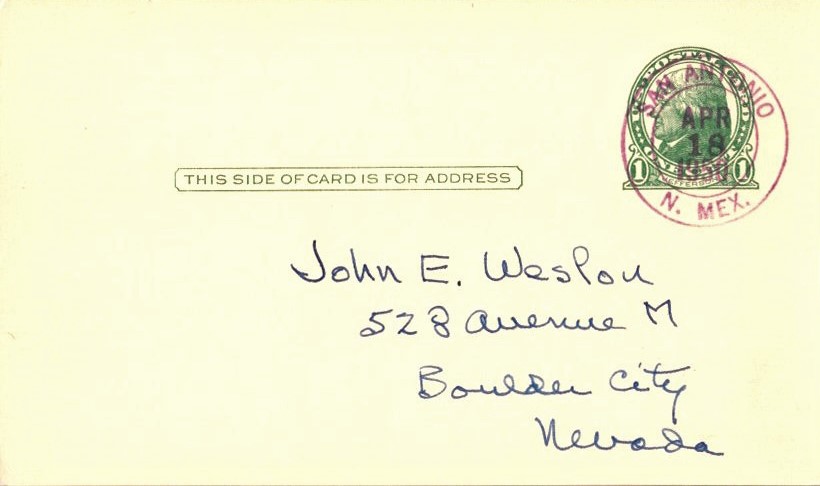 SAN ANTONIO
APR
18
1950
N. MEX.
1 JEFFERSON 1
THIS SIDE OF CARD IS FOR ADDRESS
John E. Weslon
528 Avenue M
Boulder City
Nevada